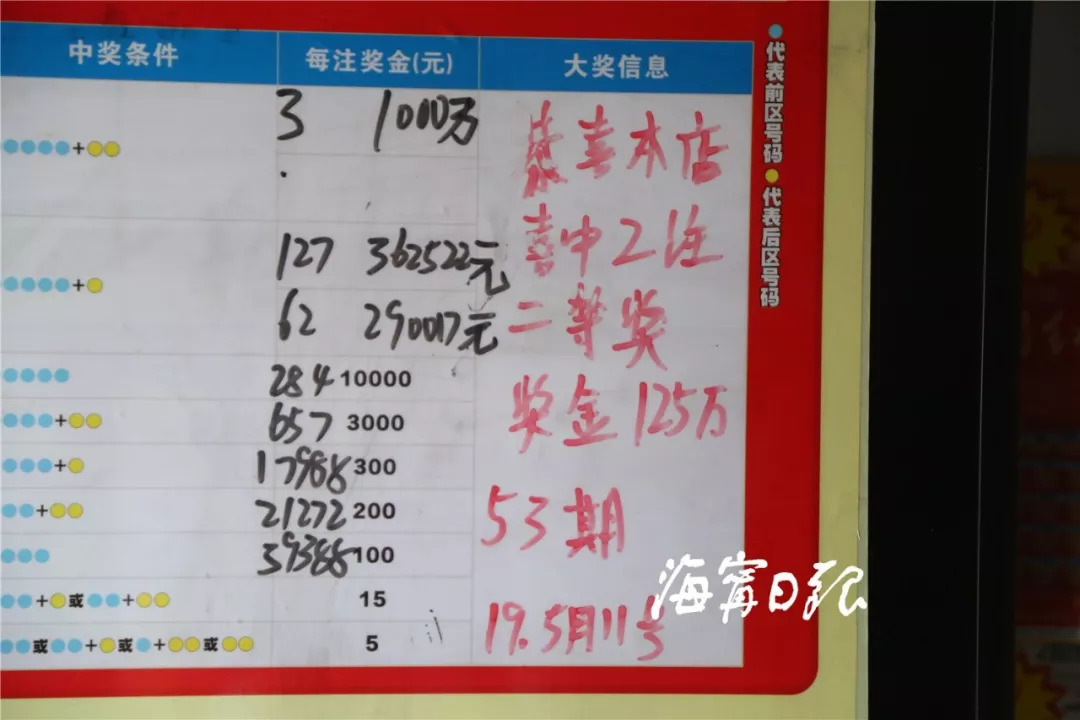 中奖条件 每注奖金(元) 大奖信息
3 1000万
127 362522元
62 290017元
284 10000
657 3000
17988 300
21272 200
39388 100
+ 或 + 15
或 + 或 + 或 5
恭喜本店
喜中2注
二等奖
奖金125万
53期
19.5月11号
代表前区号码
代表后区号码
海宁日报